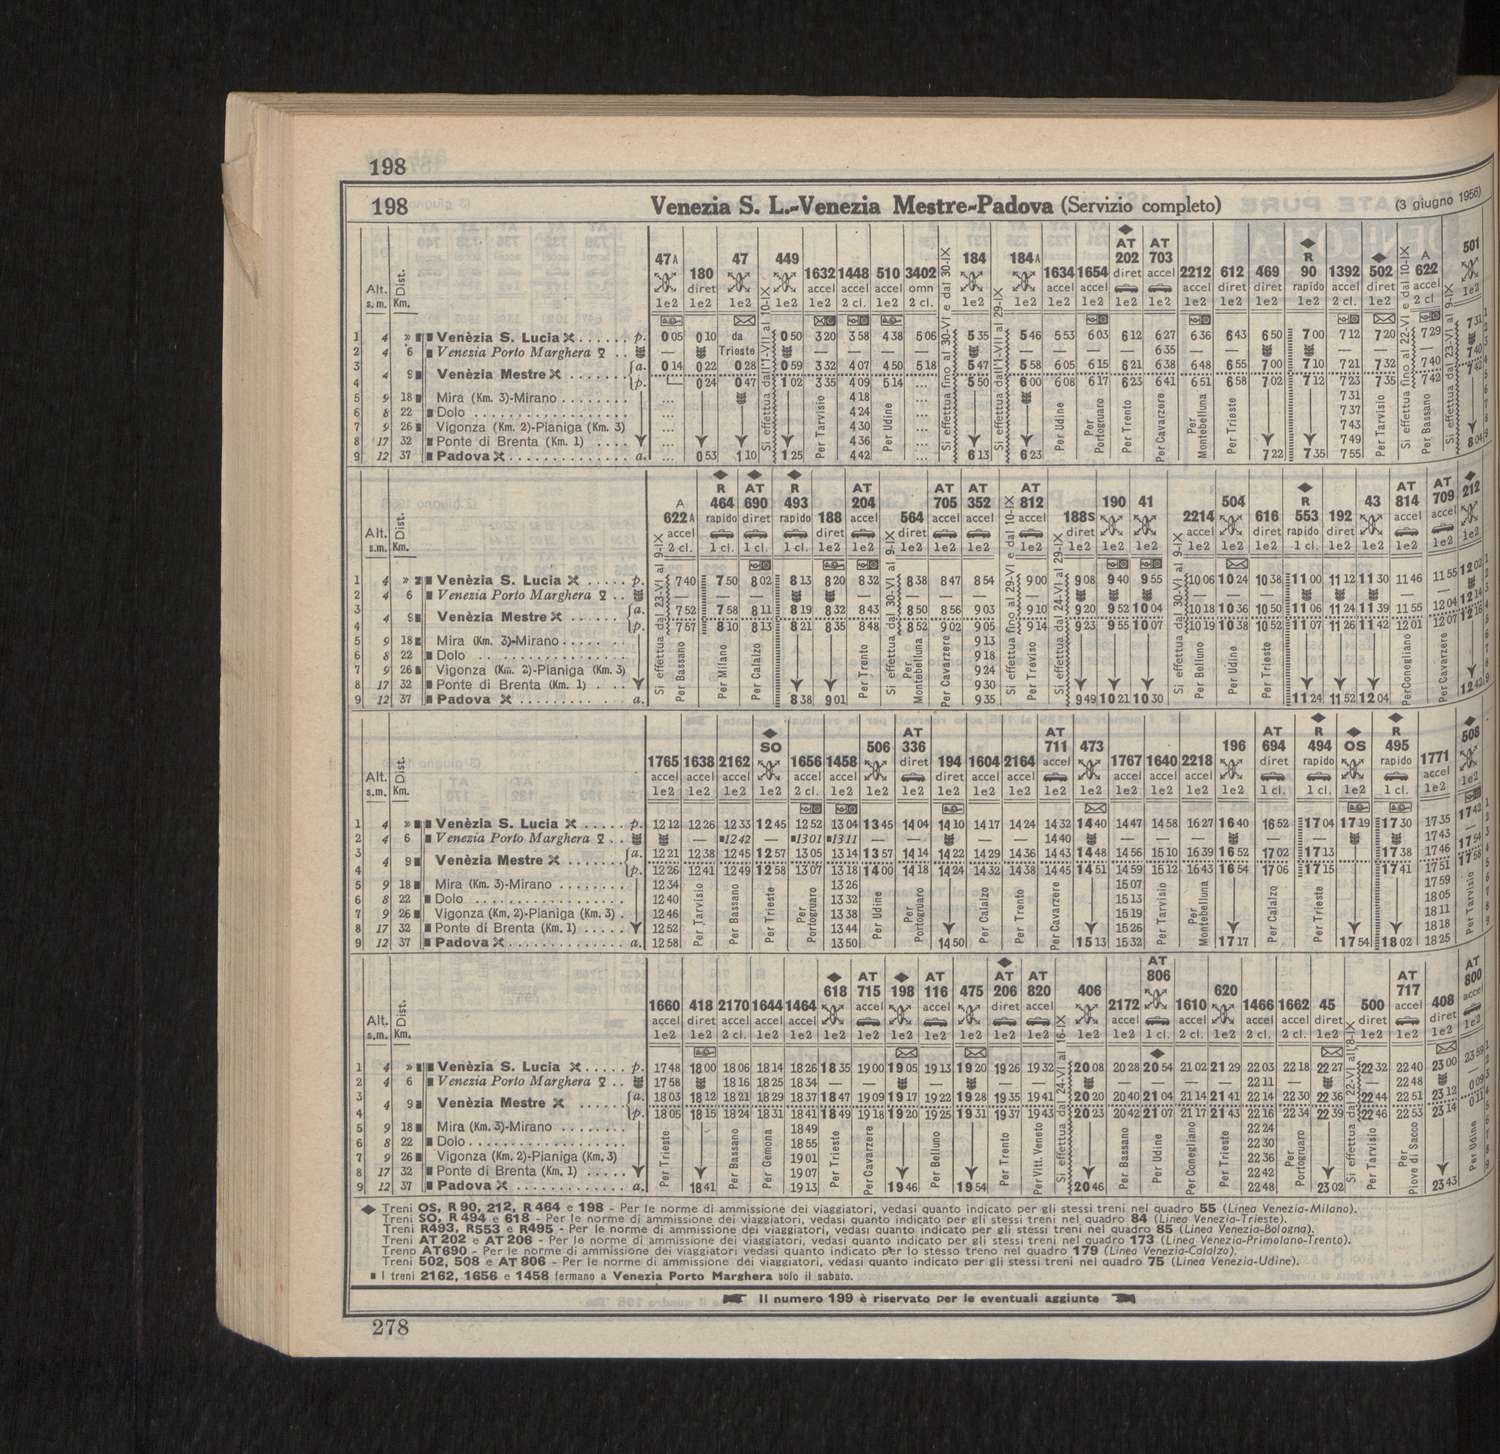 198
198 Venezia S. L.-Venezia Mestre-Padova (Servizio completo) (3 giugno 1956)
47A 180 47 449 1632 1448 510 3402 184 184A 1634 1654 AT 202 AT 703 2212 612 469 R 90 1392 502 A 622 501
diret accel accel accel omn accel accel diret accel accel diret diret rapido accel diret accel
Alt. s. m. Dist. Km. 1e2 1e2 1e2 1e2 1e2 2 cl. 1e2 2 cl. 1e2 1e2 1e2 1e2 1e2 1e2 1e2 1e2 1e2 1e2 2 cl. 1e2 2 cl 1e2
1 4 » Venèzia S. Lucia p. 0 05 0 10 da 0 50 3 20 3 58 4 38 5 06 5 35 5 46 5 53 6 03 6 12 6 27 6 36 6 43 6 50 7 00 7 12 7 20 7 29 7 31
2 4 6 Venezia Porto Marghera — Trieste — — — — — — — — 6 35 — — — — —
3 4 9 Venèzia Mestre a. 0 14 0 22 0 28 0 59 3 32 4 07 4 50 5 18 5 47 5 58 6 05 6 15 6 21 6 38 6 48 6 55 7 00 7 10 7 21 7 32 7 40 7 40
4 p. 0 24 0 47 1 02 3 35 4 09 5 14 ... 5 50 6 00 6 08 6 17 6 23 6 41 6 51 6 58 7 02 7 12 7 23 7 35 7 42 7 42
5 9 18 Mira (Km. 3)-Mirano ... 4 18 ... 7 31
6 8 22 Dolo ... 4 24 ... 7 37
7 9 26 Vigonza (Km. 2)-Pianiga (Km. 3) ... 4 30 ... 7 43
8 17 32 Ponte di Brenta (Km. 1) ... 4 36 ... 7 49
9 12 37 Padova a. ... 0 53 1 10 1 25 4 42 ... 6 13 6 23 7 22 7 35 7 55 8 04
Si effettua dall'1-VII al 10-IX
Per Tarvisio
Per Udine
Si effettua fino al 30-VI e dal 30-IX
Si effettua dall'1-VII al 29-IX
Per Udine
Per Portogruaro
Per Trento
Per Cavarzere
Per Montebelluna
Per Trieste
Per Tarvisio
Si effettua fino al 22-VI e dal 10-IX
Per Bassano
Si effettua dal 23-VI al 9-IX
A 622A R 464 AT 690 R 493 188 AT 204 564 AT 705 AT 352 AT 812 188S 190 41 2214 504 616 R 553 192 43 AT 814 AT 709 212
accel rapido diret rapido diret accel diret accel accel accel diret accel diret rapido diret accel accel
Alt. s.m. Dist. Km. 2 cl. 1 cl. 1 cl. 1 cl. 1e2 1e2 1e2 1e2 1e2 1e2 1e2 1e2 1e2 1e2 1e2 1e2 1 cl. 1e2 1e2 1e2 1e2 1e2
1 4 » Venèzia S. Lucia p. 7 40 7 50 8 02 8 13 8 20 8 32 8 38 8 47 8 54 9 00 9 08 9 40 9 55 10 06 10 24 10 38 11 00 11 12 11 30 11 46 11 55 12 02
2 4 6 Venezia Porto Marghera — — — — — — — — — — — — —
3 4 9 Venèzia Mestre a. 7 52 7 58 8 11 8 19 8 32 8 43 8 50 8 56 9 03 9 10 9 20 9 52 10 04 10 18 10 36 10 50 11 06 11 24 11 39 11 55 12 04 12 14
4 p. 7 57 8 10 8 13 8 21 8 35 8 48 8 52 9 02 9 05 9 14 9 23 9 55 10 07 10 19 10 38 10 52 11 07 11 26 11 42 12 01 12 07 12 16
5 9 18 Mira (Km. 3)-Mirano 9 13
6 8 22 Dolo 9 18
7 9 26 Vigonza (Km. 2)-Pianiga (Km. 3) 9 24
8 17 32 Ponte di Brenta (Km. 1) 9 30
9 12 37 Padova a. 8 38 9 01 9 35 9 49 10 21 10 30 11 24 11 52 12 04 12 42
Si effettua dal 23-VI al 9-IX
Per Bassano
Per Milano
Per Calalzo
Per Trento
Si effettua dal 30-VI al 9-IX
Per Montebelluna
Per Cavarzere
Si effettua fino al 29-VI e dal 10-IX
Per Treviso
Si effettua dal 24-VI al 29-IX
Si effettua dal 30-VI al 9-IX
Per Belluno
Per Udine
Per Trieste
Per Conegliano
Per Cavarzere
1765 1638 2162 SO 1656 1458 506 AT 336 194 1604 2164 AT 711 473 1767 1640 2218 196 AT 694 R 494 OS R 495 1771 508
accel accel accel accel accel diret diret accel accel accel accel accel accel diret rapido rapido accel
Alt. s.m. Dist. Km. 1e2 1e2 1e2 1e2 2 cl. 1e2 1e2 1e2 1e2 1e2 1e2 1e2 1e2 1e2 1e2 1e2 1e2 1 cl. 1 cl. 1e2 1 cl. 1e2 1e2
1 4 » Venèzia S. Lucia p. 12 12 12 26 12 33 12 45 12 52 13 04 13 45 14 04 14 10 14 17 14 24 14 32 14 40 14 47 14 58 16 27 16 40 16 52 17 04 17 19 17 30 17 35 17 42
2 4 6 Venezia Porto Marghera — 12 42 — 13 01 13 11 — — — — 14 40 — — — — — — 17 43 —
3 4 9 Venèzia Mestre a. 12 21 12 38 12 45 12 57 13 05 13 14 13 57 14 14 14 22 14 29 14 36 14 43 14 48 14 56 15 10 16 39 16 52 17 02 17 13 17 38 17 46 17 54
4 p. 12 26 12 41 12 49 12 58 13 07 13 18 14 00 14 18 14 24 14 32 14 38 14 45 14 51 14 59 15 12 16 43 16 54 17 06 17 15 17 41 17 51 17 56
5 9 18 Mira (Km. 3)-Mirano 12 34 13 26 15 07 17 59
6 8 22 Dolo 12 40 13 32 15 13 18 05
7 9 26 Vigonza (Km. 2)-Pianiga (Km. 3) 12 46 13 38 15 19 18 11
8 17 32 Ponte di Brenta (Km. 1) 12 52 13 44 15 26 18 18
9 12 37 Padova a. 12 58 13 50 14 50 15 13 15 32 17 17 17 54 18 02 18 25
Per Tarvisio
Per Bassano
Per Trieste
Per Portogruaro
Per Udine
Per Portogruaro
Per Calalzo
Per Trento
Per Cavarzere
Per Tarvisio
Per Montebelluna
Per Calalzo
Per Trieste
Per Tarvisio
1660 418 2170 1644 1464 618 AT 715 198 AT 116 475 AT 206 AT 820 406 2172 AT 806 1610 620 1466 1662 45 500 AT 717 408 AT 800
accel diret accel accel accel accel accel diret accel accel accel accel accel diret diret accel diret accel
Alt. s.m. Dist. Km. 1e2 1e2 2 cl. 1e2 1e2 1e2 1e2 1e2 1e2 1e2 1e2 1e2 1e2 1e2 1 cl. 2 cl. 1e2 2 cl. 2 cl. 1e2 1e2 1e2 1e2 1e2
1 4 » Venèzia S. Lucia p. 17 48 18 00 18 06 18 14 18 26 18 35 19 00 19 05 19 13 19 20 19 26 19 32 20 08 20 28 20 54 21 02 21 29 22 03 22 18 22 27 22 32 22 40 23 00 23 59
2 4 6 Venezia Porto Marghera 17 58 18 16 18 25 18 34 — — — — — — — — — 22 11 — — 22 48 —
3 4 9 Venèzia Mestre a. 18 03 18 12 18 21 18 29 18 37 18 47 19 09 19 17 19 22 19 28 19 35 19 41 20 20 20 40 21 04 21 14 21 41 22 14 22 30 22 36 22 44 22 51 23 12 0 09
4 p. 18 05 18 15 18 24 18 31 18 41 18 49 19 18 19 20 19 25 19 31 19 37 19 43 20 23 20 42 21 07 21 17 21 43 22 16 22 34 22 39 22 46 22 53 23 14 0 11
5 9 18 Mira (Km. 3)-Mirano 18 49 22 24
6 8 22 Dolo 18 55 22 30
7 9 26 Vigonza (Km. 2)-Pianiga (Km. 3) 19 01 22 36
8 17 32 Ponte di Brenta (Km. 1) 19 07 22 42
9 12 37 Padova a. 18 41 19 13 19 46 19 54 20 46 22 48 23 02 23 43
Per Trieste
Per Bassano
Per Gemona
Per Trieste
Per Cavarzere
Per Belluno
Per Trento
Per Vitt. Veneto
Si effettua dal 24-VI al 16-IX
Per Bassano
Per Udine
Per Conegliano
Per Trieste
Per Portogruaro
Si effettua dal 22-VI al 8-IX
Per Tarvisio
Per Piove di Sacco
Per Udine
Treni OS, R 90, 212, R 464 e 198 - Per le norme di ammissione dei viaggiatori, vedasi quanto indicato per gli stessi treni nel quadro 55 (Linea Venezia-Milano).
Treni SO, R 494 e 618 - Per le norme di ammissione dei viaggiatori, vedasi quanto indicato per gli stessi treni nel quadro 84 (Linea Venezia-Trieste).
Treni R493, R553 e R495 - Per le norme di ammissione dei viaggiatori, vedasi quanto indicato per gli stessi treni nel quadro 85 (Linea Venezia-Bologna).
Treni AT 202 e AT 206 - Per le norme di ammissione dei viaggiatori, vedasi quanto indicato per gli stessi treni nel quadro 173 (Linea Venezia-Primolano-Trento).
Treno AT690 - Per le norme di ammissione dei viaggiatori vedasi quanto indicato per lo stesso treno nel quadro 179 (Linea Venezia-Calalzo).
Treni 502, 508 e AT 806 - Per le norme di ammissione dei viaggiatori, vedasi quanto indicato per gli stessi treni nel quadro 75 (Linea Venezia-Udine).
I treni 2162, 1656 e 1458 fermano a Venezia Porto Marghera solo il sabato.
Il numero 199 è riservato per le eventuali aggiunte
278